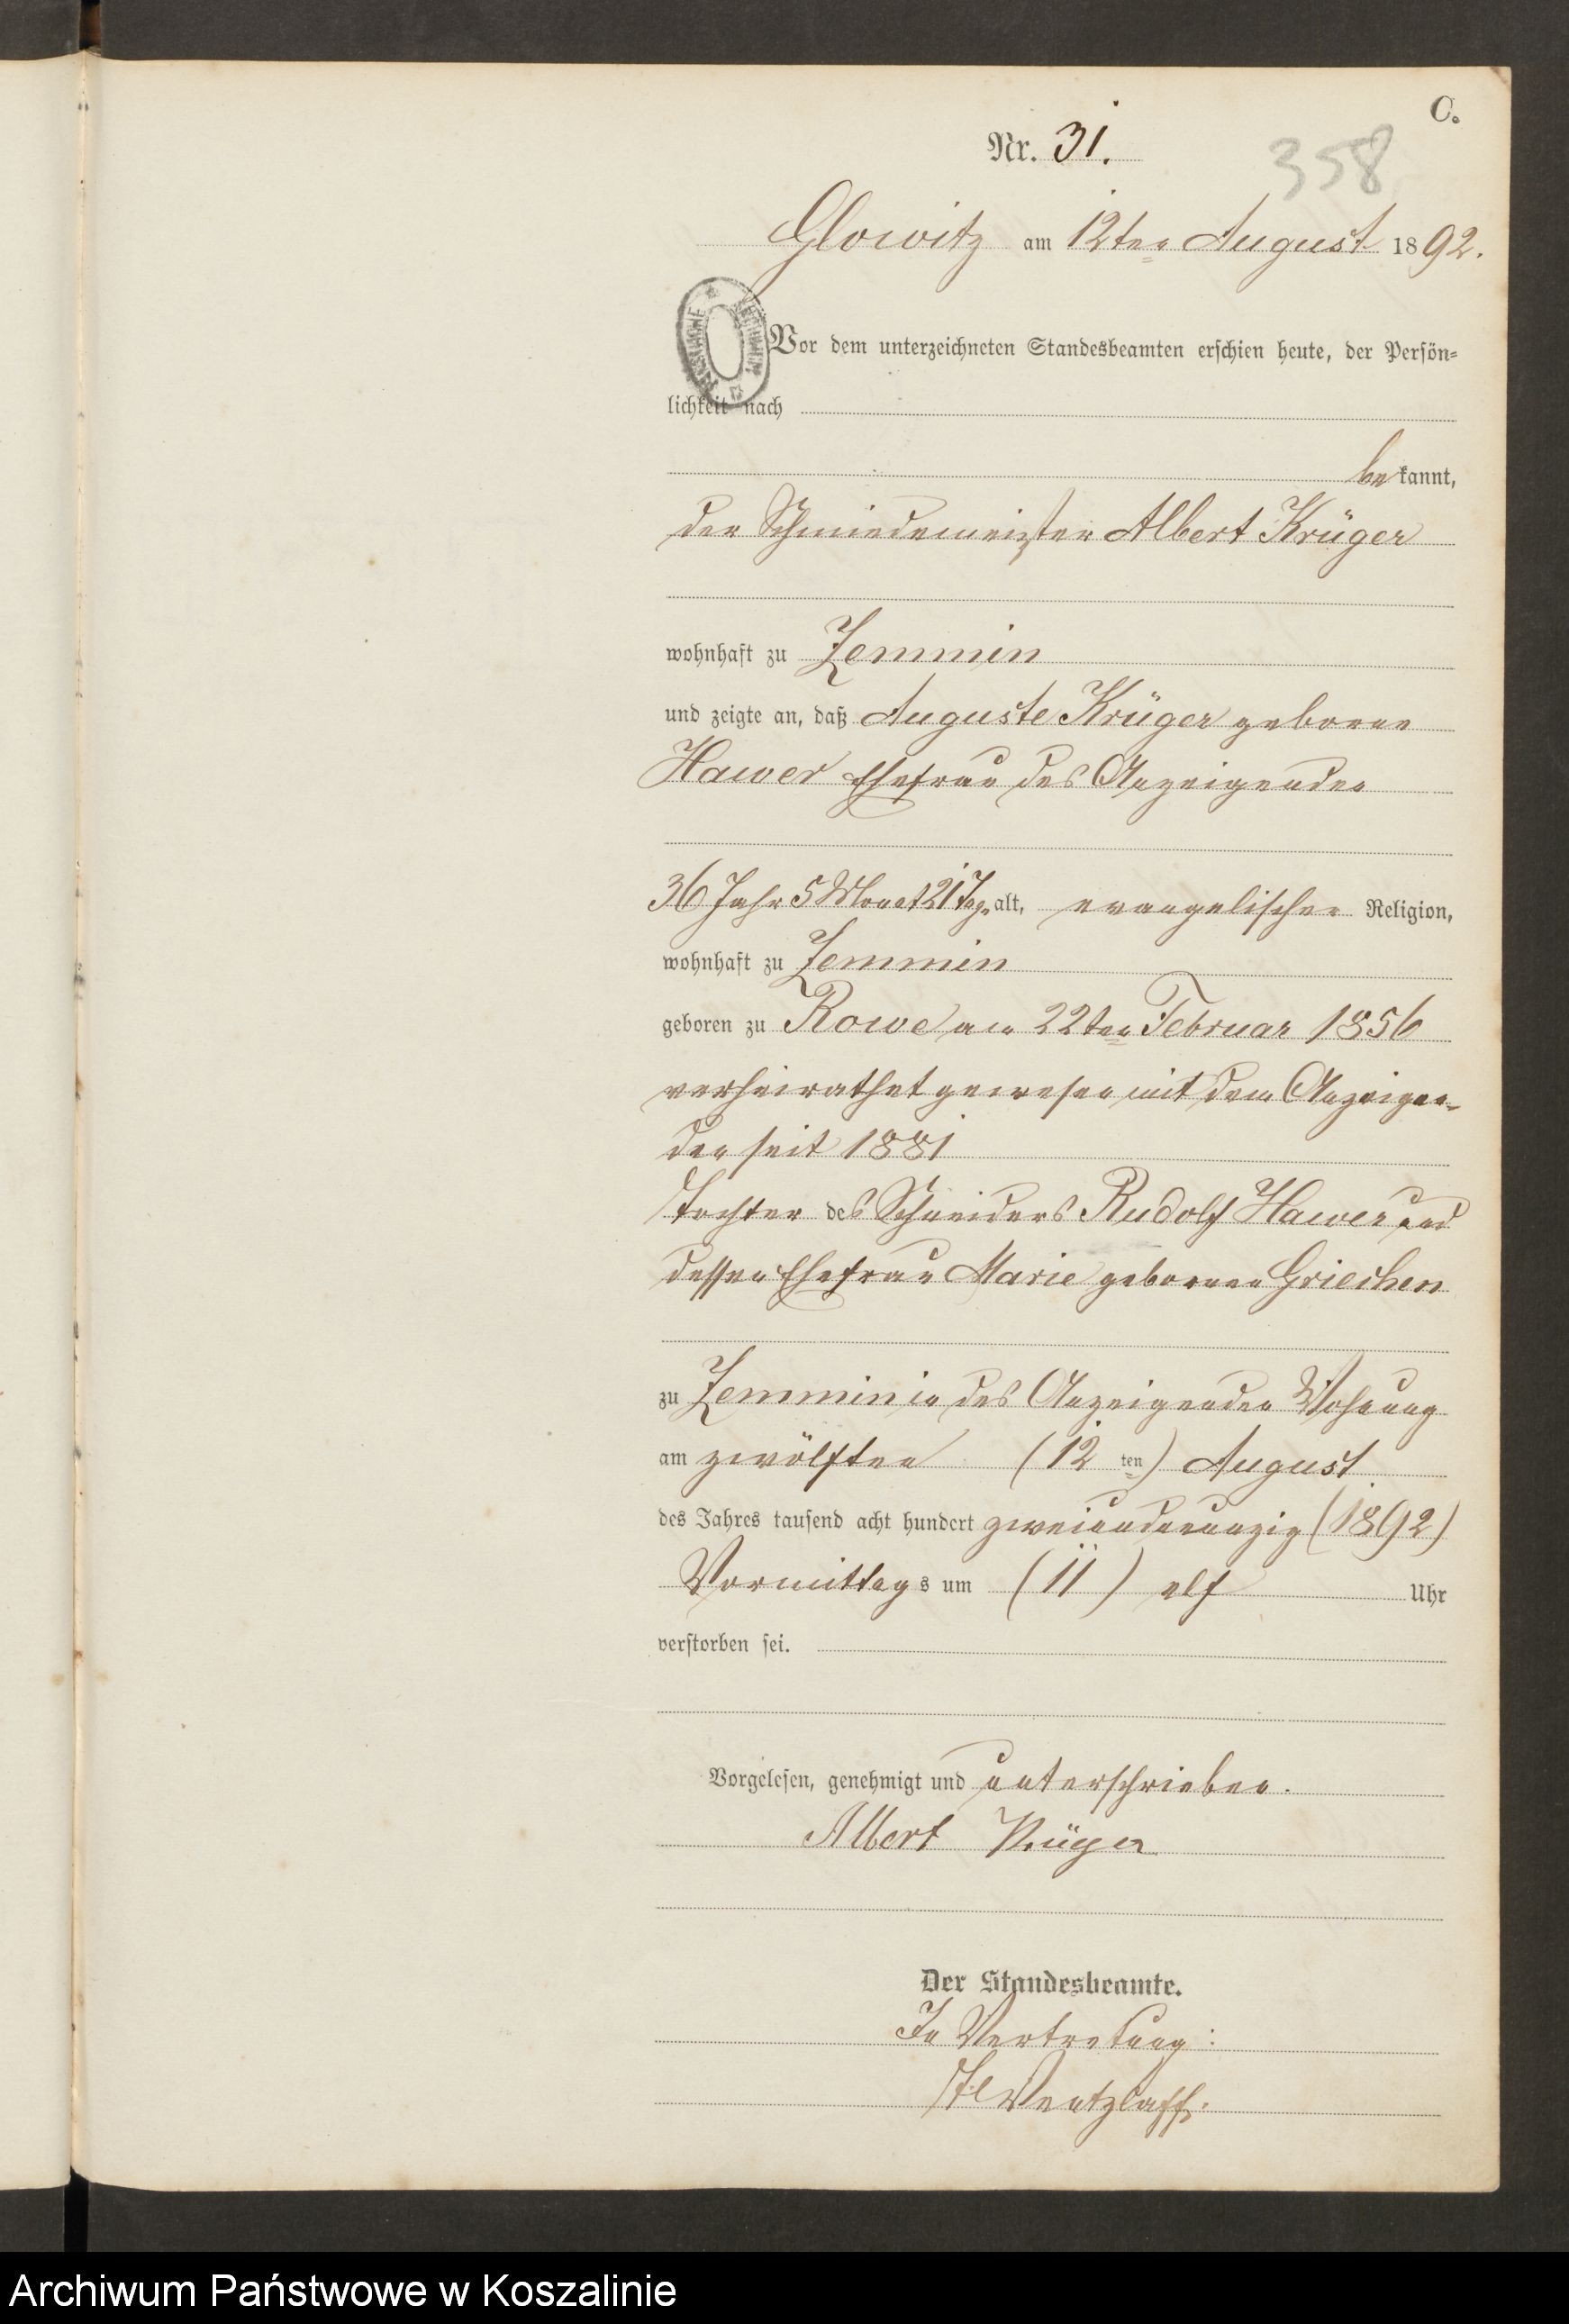 C.
Nr. 31.
358
Glowitz am 12ten August 1892.
Vor dem unterzeichneten Standesbeamten erschien heute, der Persön-
lichkeit nach
bekannt,
der Schmiedemeister Albert Krüger
wohnhaft zu Zemmin
und zeigte an, daß Auguste Krüger geborne
Hawer Ehefrau des Anzeigenden
36 Jahr 5 Monat 21 Tage alt, evangelischer Religion,
wohnhaft zu Zemmin
geboren zu Rowe am 22ten Februar 1856
verheirathet gewesen mit dem Anzeigen-
den seit 1881
Tochter des Schneiders Rudolf Hawer und
dessen Ehefrau Marie gebornen Griechen
zu Zemmin in des Anzeigenden Wohnung
am zwölften (12 ten) August
des Jahres tausend acht hundert zweiundneunzig (1892)
Vormittags um (11) elf Uhr
verstorben sei.
Vorgelesen, genehmigt und unterschrieben.
Albert Krüger
Der Standesbeamte.
In Vertretung:
Wentzlaff.
Archiwum Państwowe w Koszalinie